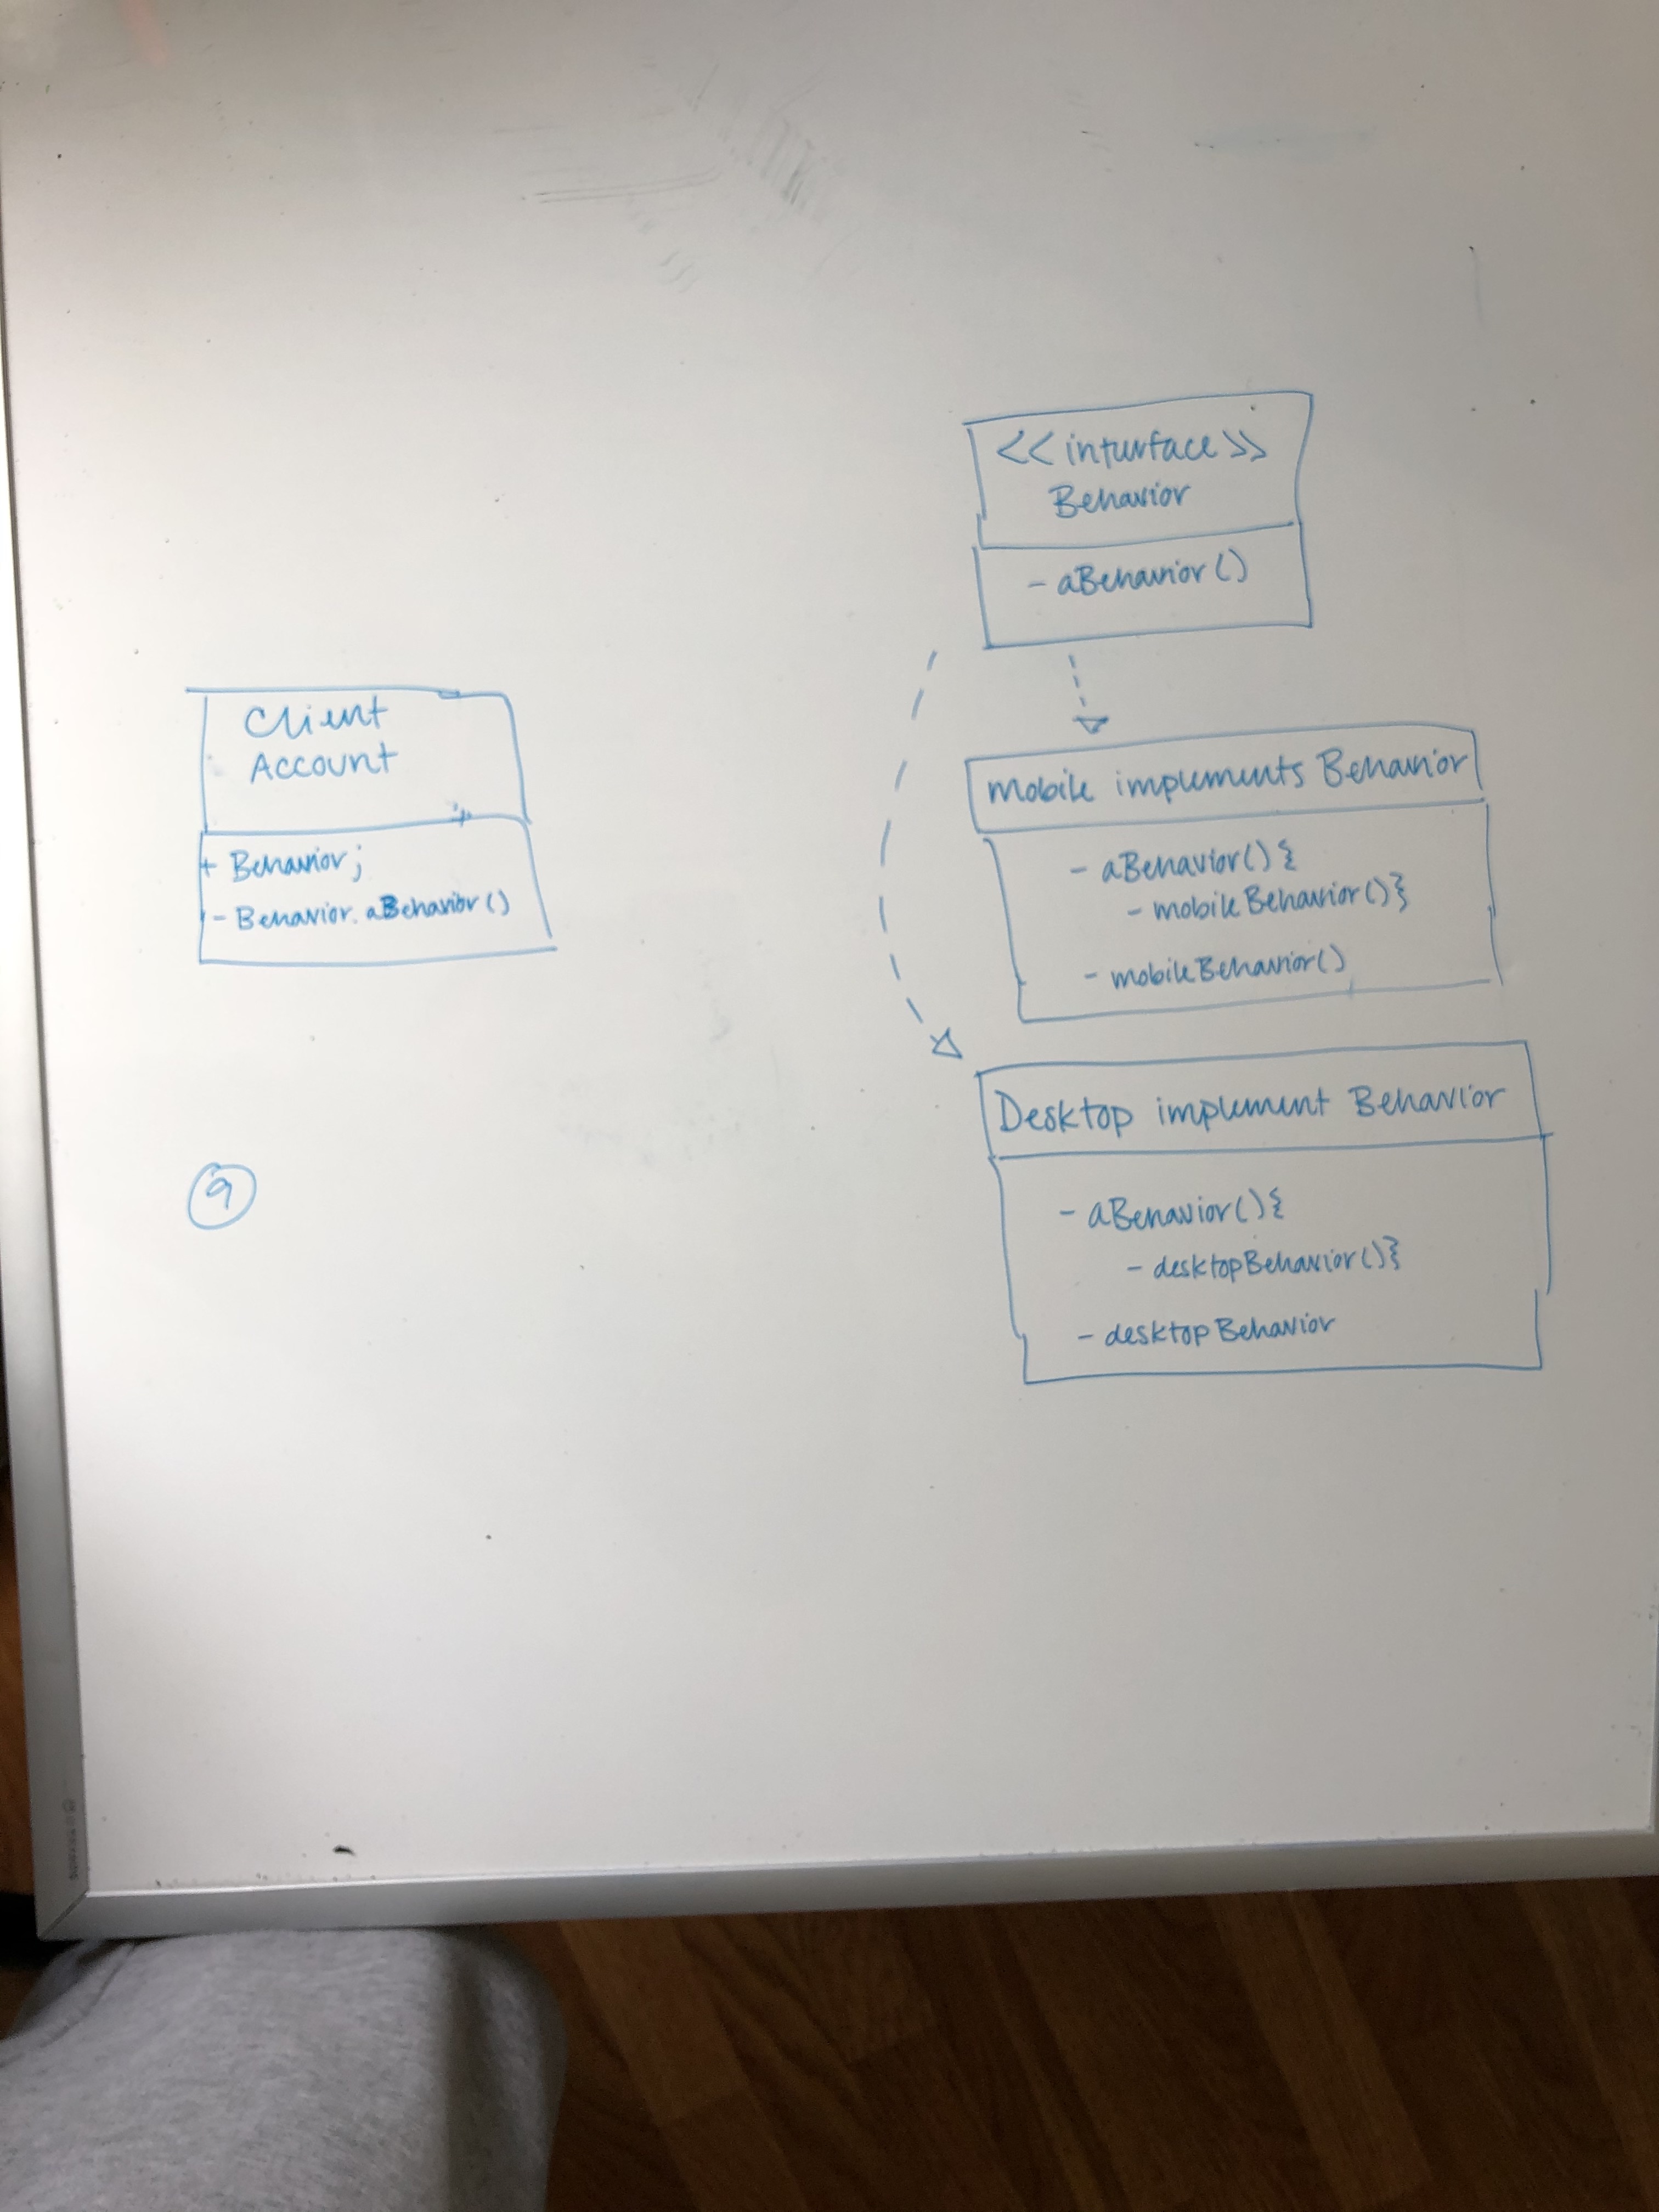 <<inturface>>
Behavior
- aBehavior()
Client
Account
+ Behavior;
- Behavior.aBehavior()
mobile implements Behavior
- aBehavior(){
- mobileBehavior()}
- mobileBehavior()
Desktop implement Behavior
- aBehavior(){
- desktopBehavior()}
- desktopBehavior
9